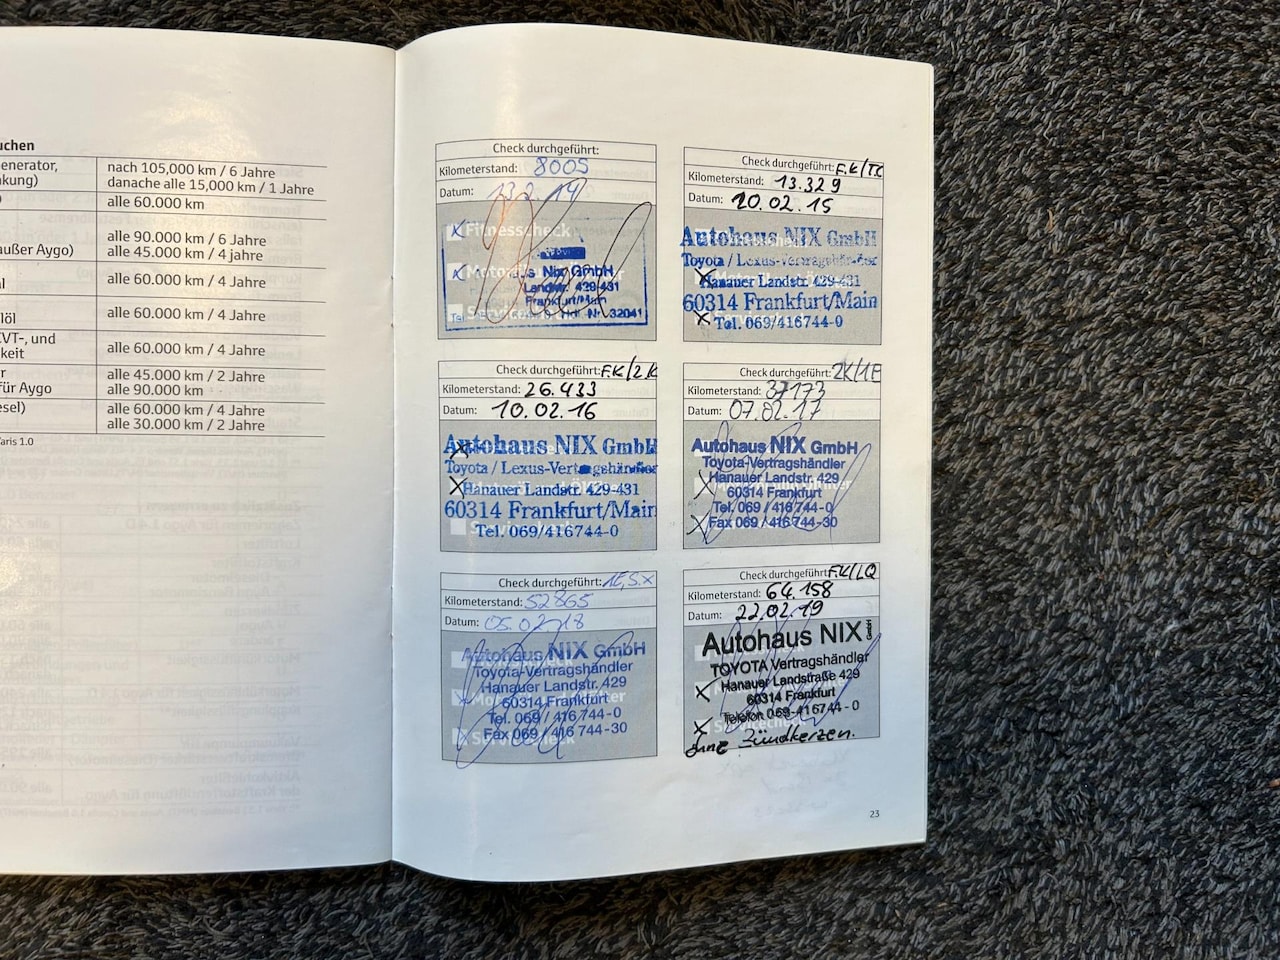 uchen
enerator,
nkung)
nach 105,000 km / 6 Jahre
danache alle 15,000 km / 1 Jahre
alle 60.000 km
außer Aygo)
alle 90.000 km / 6 Jahre
alle 45.000 km / 4 jahre
al
alle 60.000 km / 4 Jahre
löl
alle 60.000 km / 4 Jahre
CVT-, und
keit
alle 60.000 km / 4 Jahre
r
für Aygo
alle 45.000 km / 2 Jahre
alle 90.000 km
esel)
alle 60.000 km / 4 Jahre
alle 30.000 km / 2 Jahre
Yaris 1.0
Check durchgeführt:
Kilometerstand: 8005
Datum: 13.2.14
Fitnesscheck
Nix GmbH
Landstr. 429-431
Frankfurt/Main
Tel. 32041
Check durchgeführt: F.K/TC
Kilometerstand: 13.329
Datum: 10.02.15
Autohaus NIX GmbH
Toyota / Lexus-Vertragshändler
Hanauer Landstr. 429-431
60314 Frankfurt/Main
Tel. 069/416744-0
Check durchgeführt: F.K/2.K
Kilometerstand: 26.433
Datum: 10.02.16
Autohaus NIX GmbH
Toyota / Lexus-Vertragshändler
Hanauer Landstr. 429-431
60314 Frankfurt/Main
Tel. 069/416744-0
Check durchgeführt: 2K/1E
Kilometerstand: 37173
Datum: 07.02.17
Autohaus NIX GmbH
Toyota-Vertragshändler
Hanauer Landstr. 429
60314 Frankfurt
Tel. 069 / 416 744-0
Fax 069 / 416 744-30
Check durchgeführt: 1E,S.X
Kilometerstand: 52865
Datum: 05.02.18
Autohaus NIX GmbH
Toyota-Vertragshändler
Hanauer Landstr. 429
60314 Frankfurt
Tel. 069 / 416 744-0
Fax 069 / 416 744-30
Servicecheck
Check durchgeführt: F.K/LQ
Kilometerstand: 64.158
Datum: 22.02.19
Autohaus NIX GmbH
TOYOTA Vertragshändler
Hanauer Landstraße 429
60314 Frankfurt
Telefon 069-416744-0
Servicecheck
ohne Zündkerzen.
23